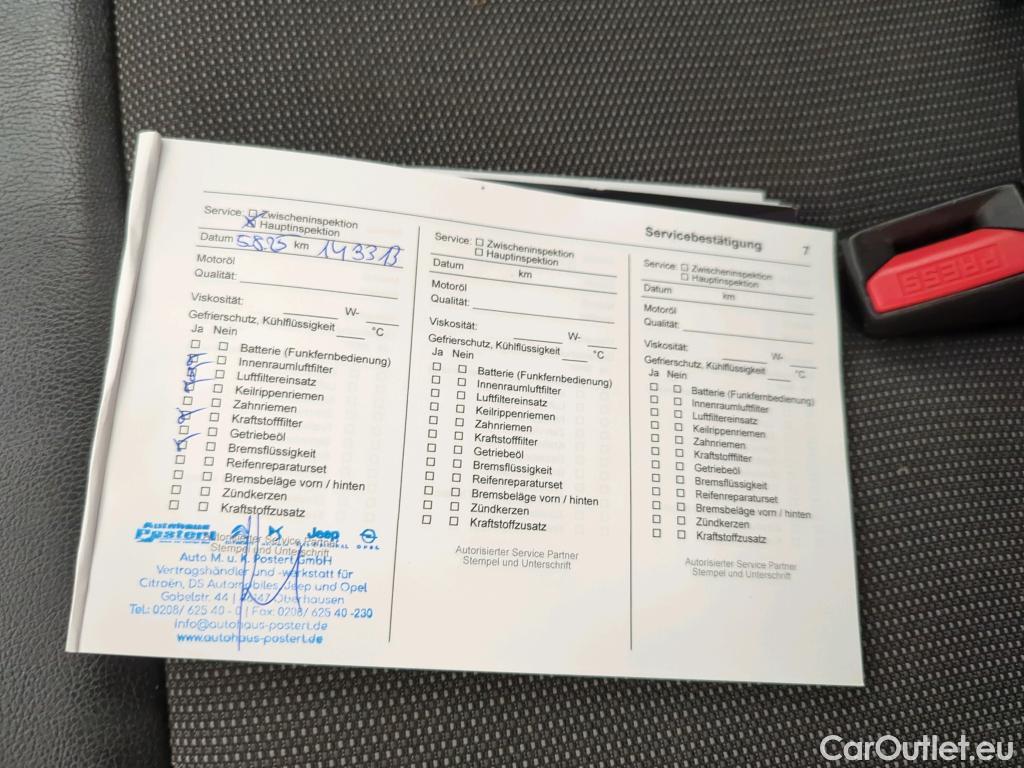 Servicebestätigung 7
Service: Zwischeninspektion
Hauptinspektion
Datum 5.8.25 km 143313
Motoröl
Qualität:
Viskosität: W-
Gefrierschutz, Kühlflüssigkeit °C
Ja Nein
Batterie (Funkfernbedienung)
Innenraumluftfilter
Luftfiltereinsatz
Keilrippenriemen
Zahnriemen
Kraftstofffilter
Getriebeöl
Bremsflüssigkeit
Reifenreparaturset
Bremsbeläge vorn / hinten
Zündkerzen
Kraftstoffzusatz
Autorisierter Service Partner
Stempel und Unterschrift
Autohaus
Postert
Jeep
OPEL
Auto M. u. K. Postert GmbH
Vertragshändler und -werkstatt für
Citroën, DS Automobiles, Jeep und Opel
Gabelstr. 44 | 46147 Oberhausen
Tel.: 0208/ 625 40 - 0 | Fax: 0208/ 625 40 -230
info@autohaus-postert.de
www.autohaus-postert.de
Service: Zwischeninspektion
Hauptinspektion
Datum km
Motoröl
Qualität:
Viskosität: W-
Gefrierschutz, Kühlflüssigkeit °C
Ja Nein
Batterie (Funkfernbedienung)
Innenraumluftfilter
Luftfiltereinsatz
Keilrippenriemen
Zahnriemen
Kraftstofffilter
Getriebeöl
Bremsflüssigkeit
Reifenreparaturset
Bremsbeläge vorn / hinten
Zündkerzen
Kraftstoffzusatz
Autorisierter Service Partner
Stempel und Unterschrift
Service: Zwischeninspektion
Hauptinspektion
Datum km
Motoröl
Qualität:
Viskosität: W-
Gefrierschutz, Kühlflüssigkeit °C
Ja Nein
Batterie (Funkfernbedienung)
Innenraumluftfilter
Luftfiltereinsatz
Keilrippenriemen
Zahnriemen
Kraftstofffilter
Getriebeöl
Bremsflüssigkeit
Reifenreparaturset
Bremsbeläge vorn / hinten
Zündkerzen
Kraftstoffzusatz
Autorisierter Service Partner
Stempel und Unterschrift
PRESS
CarOutlet.eu